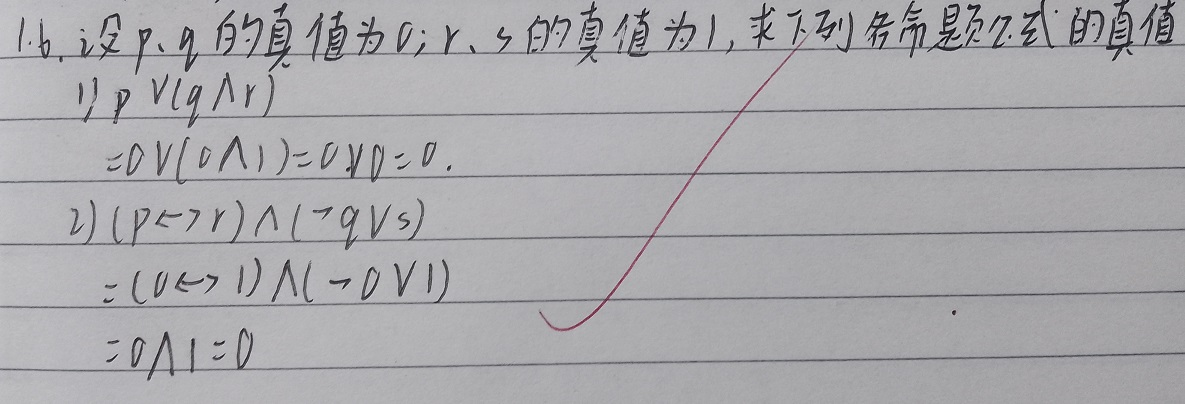 1.6. 设p、q的真值为0;r、s的真值为1,求下列各命题公式的真值
1) p∨(q∧r)
=0∨(0∧1)=0∨0=0.
2) (p↔r)∧(¬q∨s)
=(0↔1)∧(¬0∨1)
=0∧1=0